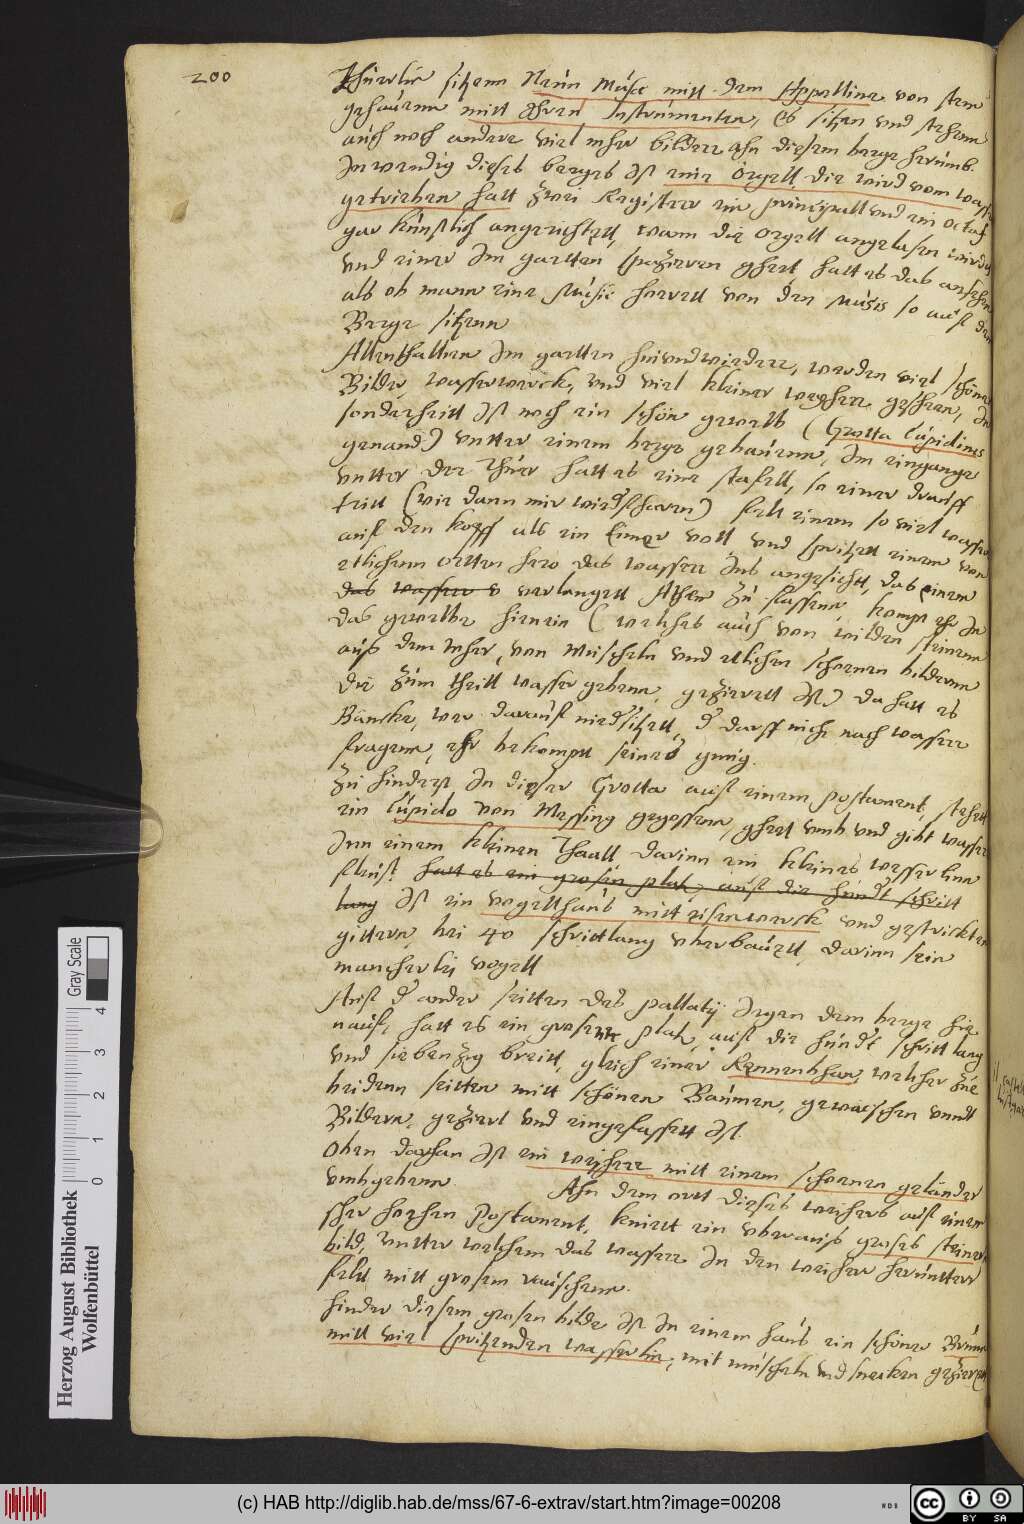 200
Thürlin sitzenn Neün Müsee mitt dem Appolline von stein
gehaüenn mitt Ihren Instrümenten, Es sitzen vnd stehenn
aüch noch andere viel mher bilder ahn diesem berge herümb.
Inwendig dieses berges Ist eine Orgell, die wird vom wasser
getrieben hatt zwei Register ein principall vnd ein octaf
gar künstlich angerichtett, wann die Orgell angelasen wirdt
vnd einer Im gartten spazieren ghett hatt es das ansehen
als ob mann eine Müsic horett von den Müsis so aüf dem
Berge sitzenn
Allenthalben Im gartten hin vnd wieder, werden viel schöne
Bilder, wasserwerck, vnd viel kleiner weyher gesehen, In
sonderheitt Ist noch ein schön gewelb (Grotta Cüpidines
genand) vntter einem berge gehaüenn, Im eingange
vntter der Thüer hatt es eine stafell, so einer draüff
tritt (wie dann mir wiederfharen) felt einem so viel wasser
aüf den kopff als ein Eimer voll, vnd spritzett einem von
etlichenn ortten hero das wasser Ins angesicht, das einem
das wasser v verlangett Athem zü fassenn, kompt ehr In
das gewelbe hienein (welches aüch von wilden steinenn
aüs dem Mher, von Müscheln vnd etlichen schoenen bildernn
die züm theill wasser gebenn, gezierett Ist) da hatt es
Bäncke, wer daraüf niedersitzett, der darff nich nach wasser
fragenn, ehr bekompt seines gnüg.
Zü hinderst In dieser Grotta aüf einem postament, stehett
ein Cüpido von Messing gegossenn, ghett vmb vnd gibt wasser
Inn einem kleinen Thaall, darinn ein kleines wesserlinn
fleüst. hatt es ein grosen platz, aüf die hündert schritt
lang Ist ein vogellhaüs mitt eisenwerck vnd gestrickten
gittern, bei 40 schrittlang vberbaüett, darinn sein
mancherlei vogell
Aüf der ander seitten des pallatij Iegen dem berge hie
naüf, hatt es ein grosenn platz, aüf die hündert schritt lang
vnd siebenzig breitt, gleich einer Rennenbhan, welcher zü
beidenn seitten mitt schönen Baümen, gewechsen vnndt
Bildern, geziert vnd eingefassett Ist.
Oben darhan Ist ein weyher mitt einem schoenen geländer
vmbgebenn. Ahn dem ortt dieses weihers aüf einem
sher hohen Postament, kniett ein vberaüs groses steinern
bild, vntter welchem das wasser In den weiher herüntter
felt mitt grosem raüschenn.
Hinder diesem grosen bilde Ist In einem haüs ein schöner Brünn
mitt viel spritzenden wasserlin, mit müscheln vnd snecken gezieret
Gray Scale
0 1 2 3 4
Herzog August Bibliothek
Wolfenbüttel
(c) HAB http://diglib.hab.de/mss/67-6-extrav/start.htm?image=00208
WDB
cc BY SA